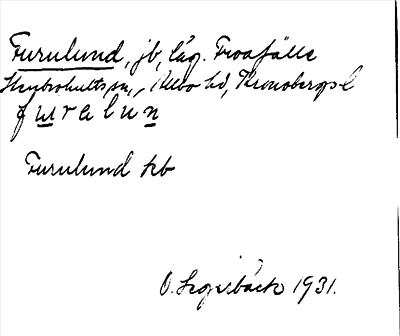 Furulund, jb, låg. Troafälle
Stenbrohults sn, Allbo hd, Kronobergs l
furalun
Furulund kb
O. Legnebäck 1931.